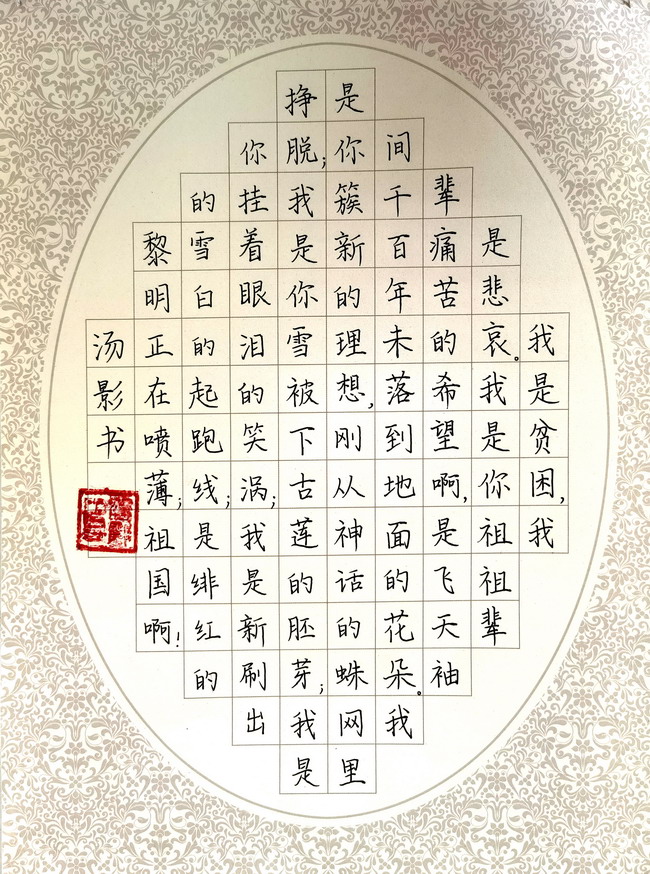 我是贫困,我
是悲哀。我是你祖祖辈
辈痛苦的希望啊,是飞天袖
间千百年未落到地面的花朵。我
是你簇新的理想,刚从神话的蛛网里
挣脱;我是你雪被下古莲的胚芽;我是
你挂着眼泪的笑涡;我是新刷出
的雪白的起跑线;是绯红的
黎明正在喷薄;祖国啊!
汤影书